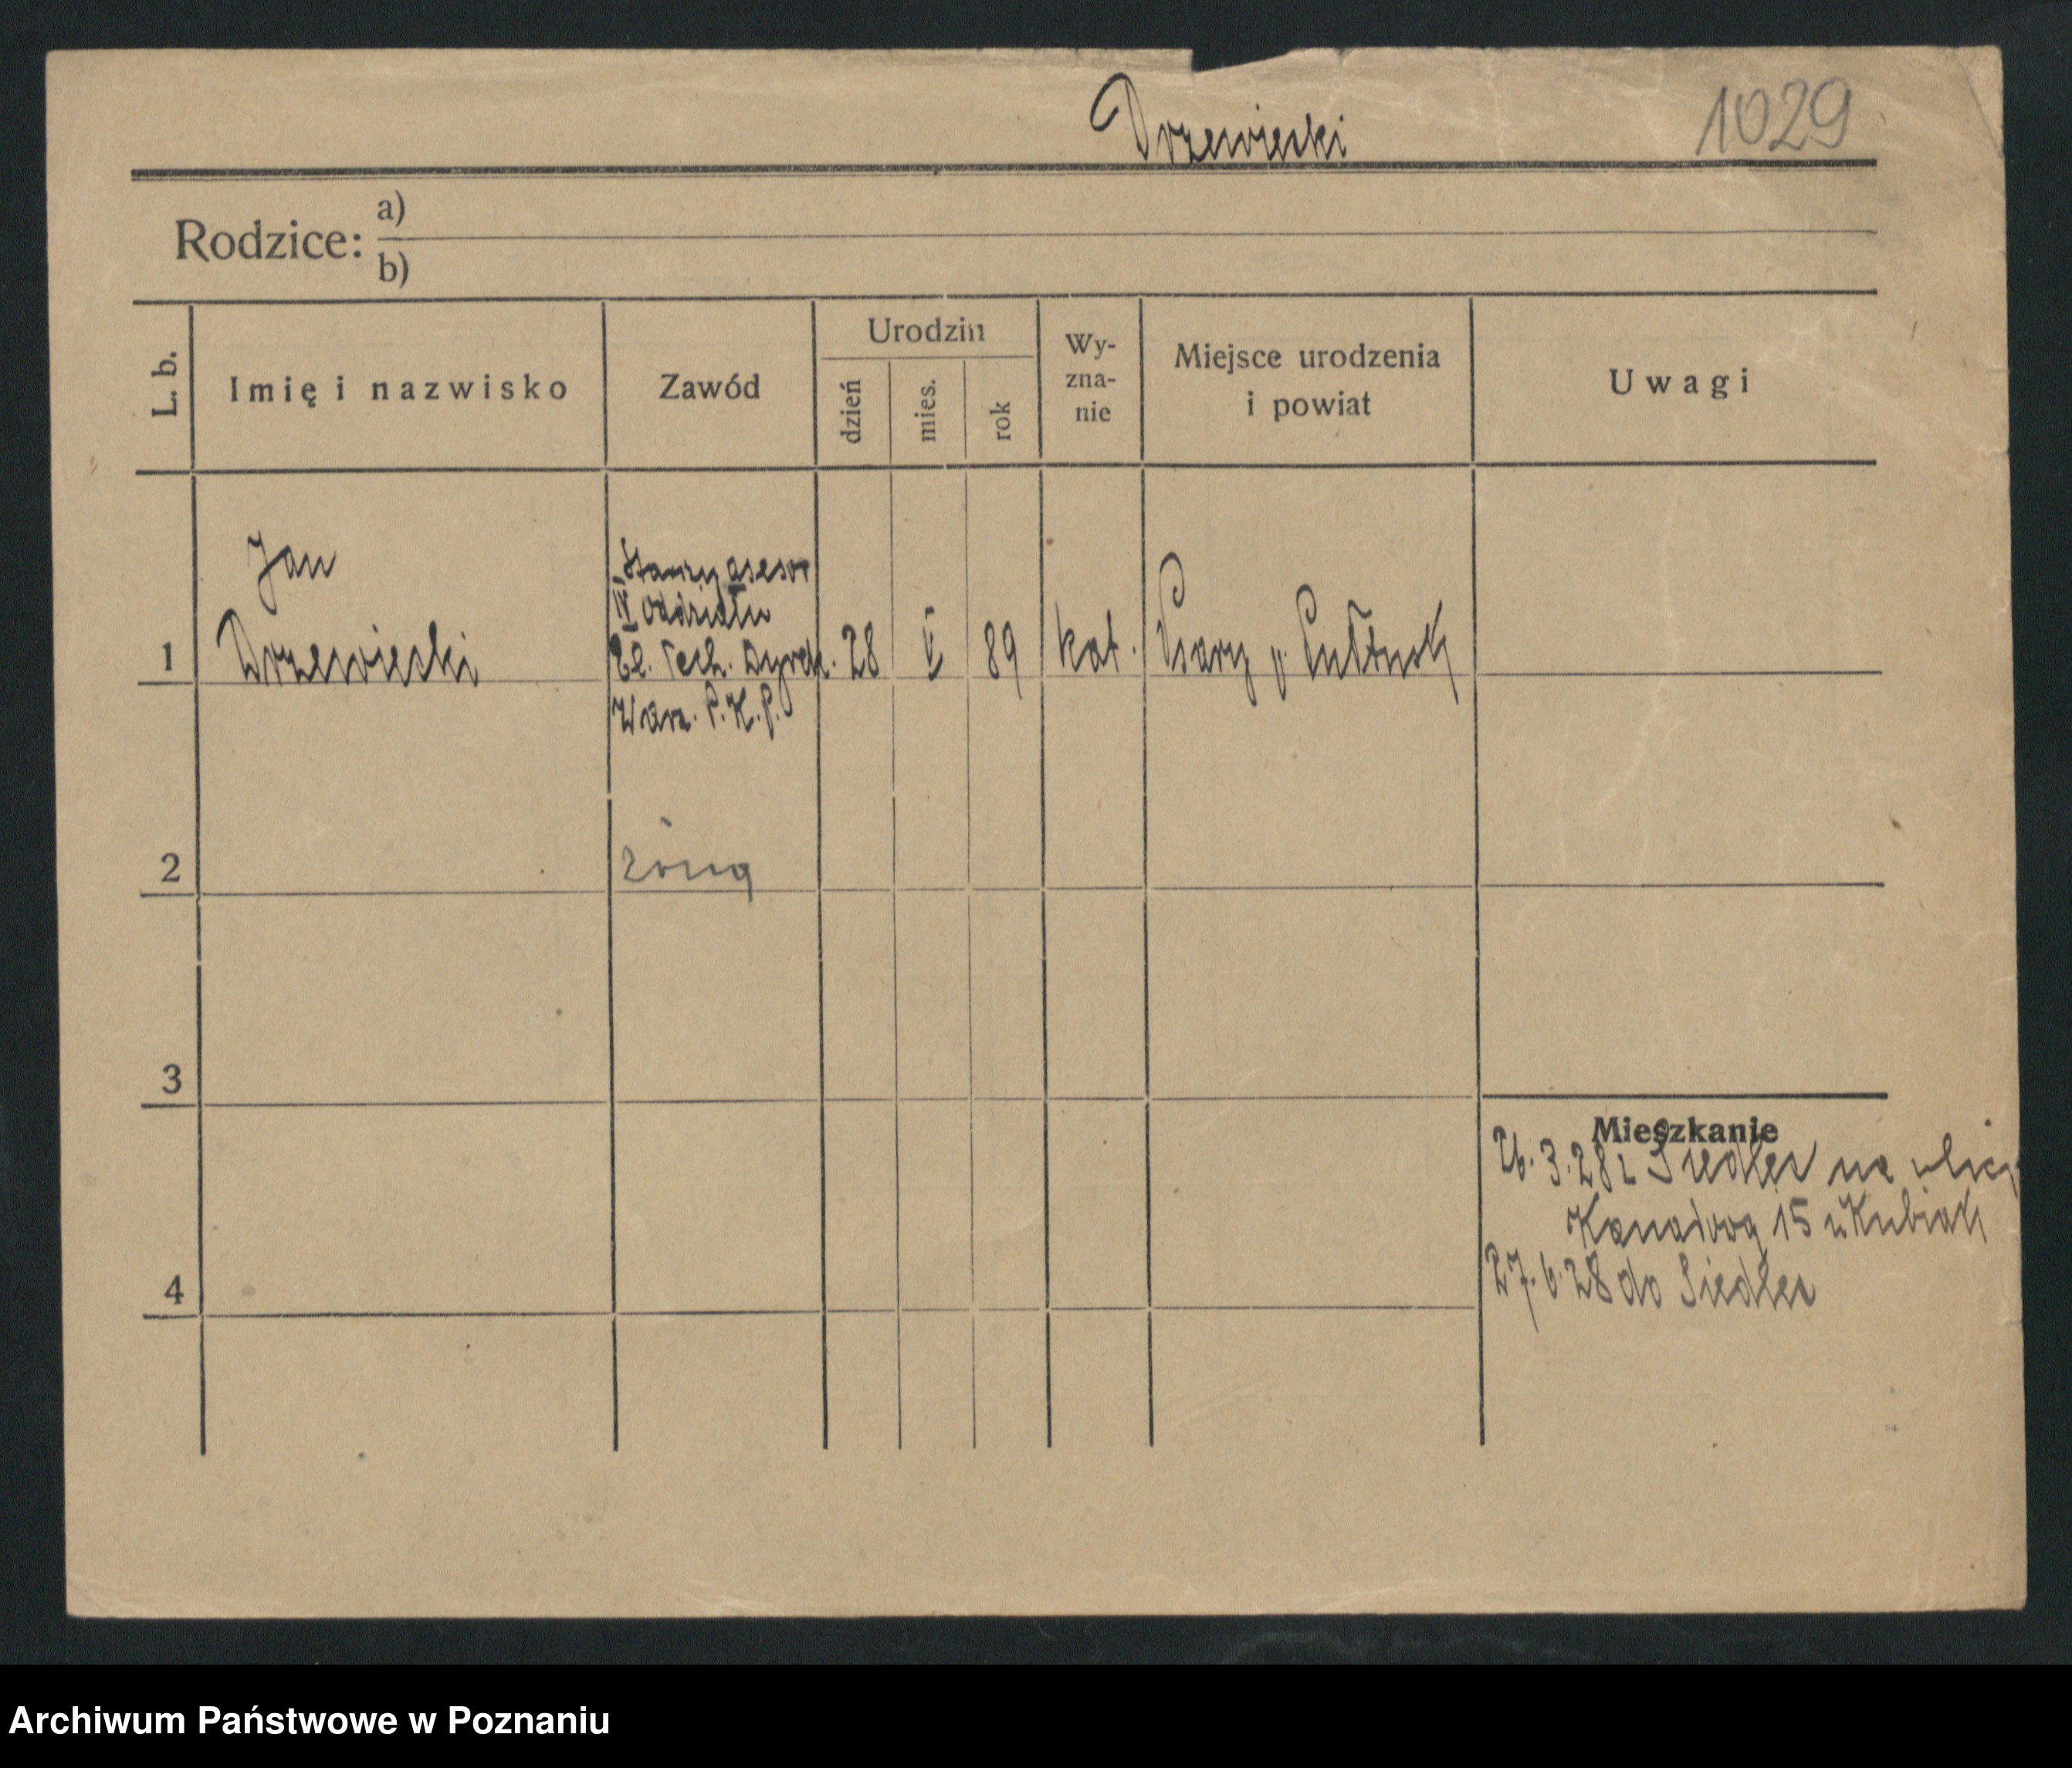 Drzewiecki
1029
Rodzice: a)
b)
L. b.
Imię i nazwisko
Zawód
Urodzin
dzień
mies.
rok
Wy-
zna-
nie
Miejsce urodzenia
i powiat
Uwagi
Jan
Starszy asesor
IV oddziału
El. Tech. Dyrek.
Warz. P.K.P.
1
Drzewiecki
28
V
89
kat.
Psary p. Pułtusk
2
żona
3
Mieszkanie
26.3.28 z Siedlec na ulicę
15 u Kubiak
27.6.28 do Siedlec
4
Archiwum Państwowe w Poznaniu